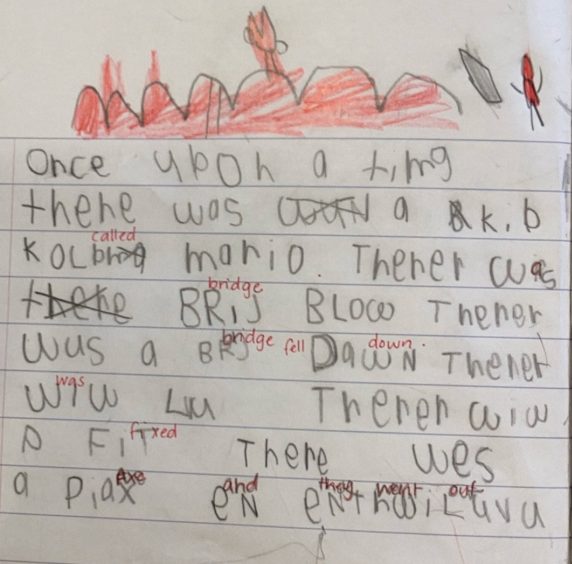 Once upon a timg
there was a k.b
called
KOL mario. Therer was
bridge
BRIJ BLOW Therer
was a BRJ bridge fell DawN down. Therer
was
wiw Lu Therer wiw
a FiT fixed There wes
a Piax Axe eN and they went out